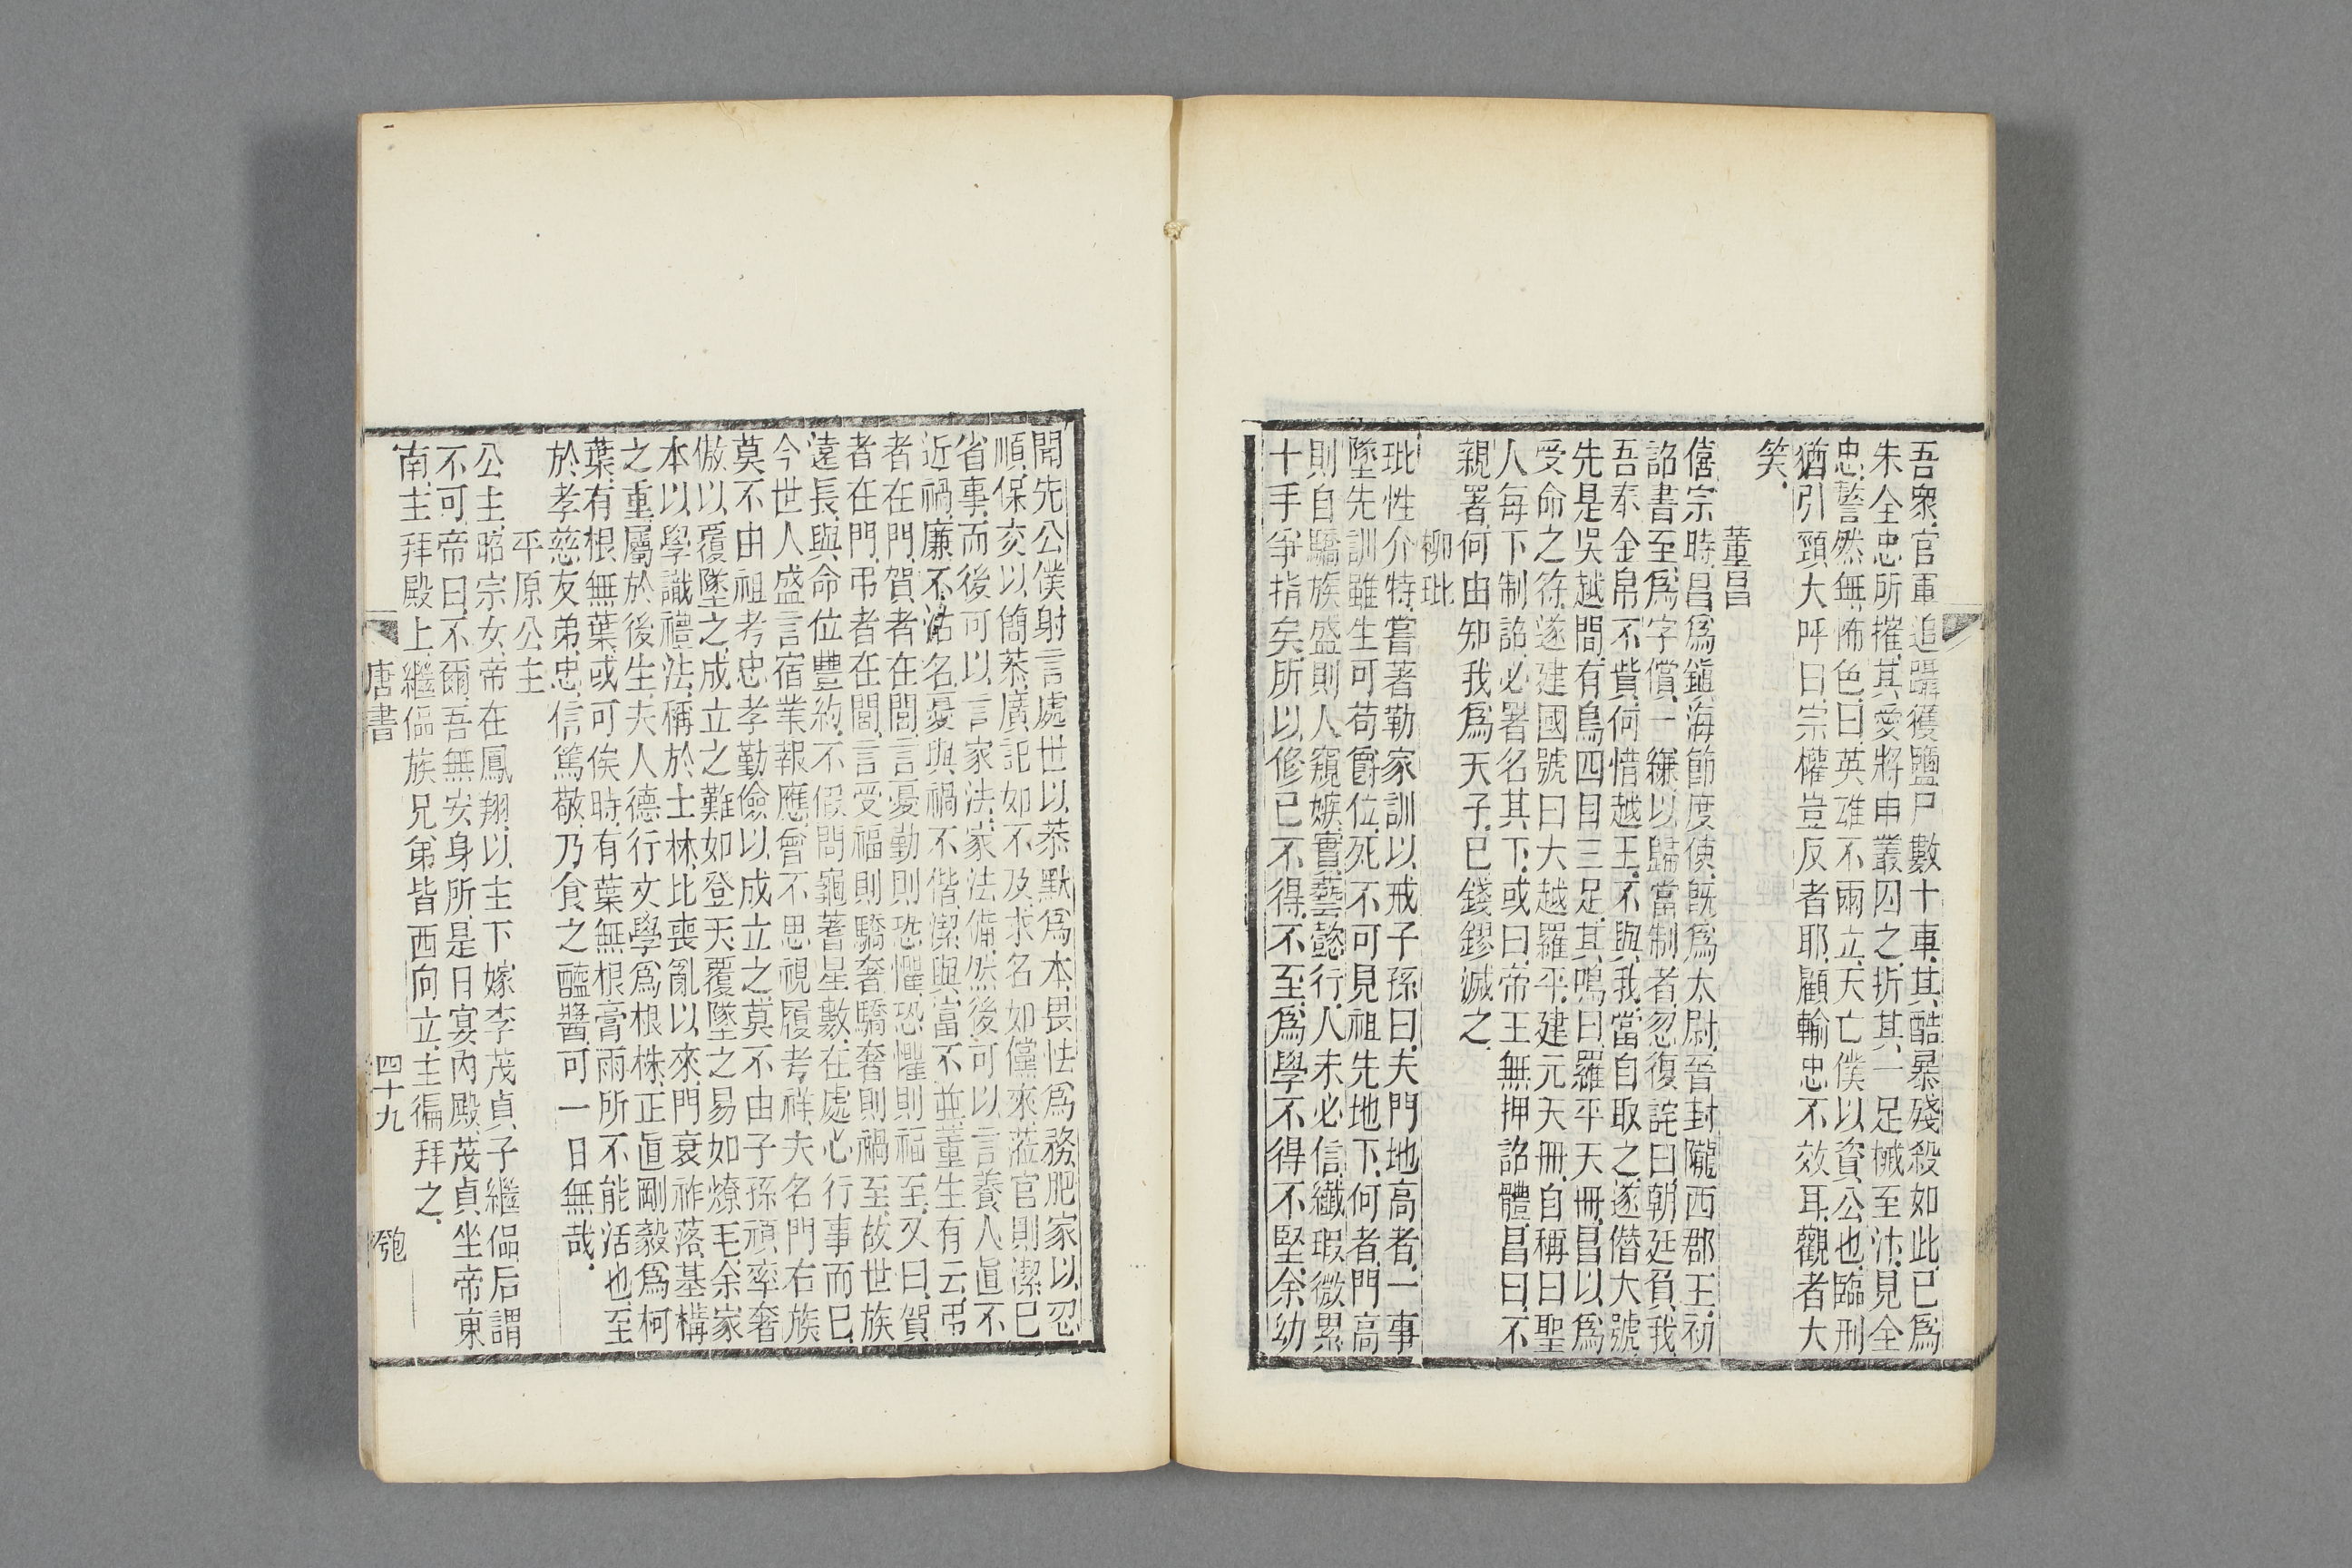 吾衆官軍追躡獲鹽尸數十車其酷暴殘殺如此已爲
朱全忠所摧其愛將申叢囚之折其一足械至汴見全
忠謷然無怖色曰英雄不兩立天亡僕以資公也臨刑
猶引頸大呼曰宗權豈反者耶顧輸忠不效耳觀者大
笑
董昌
僖宗時昌爲鎭海節度使旣爲太尉晉封隴西郡王初
詔書至爲字償一縑以歸當制者忽復詫曰朝廷負我
吾奉金帛不貲何惜越王不與我當自取之遂僭大號
先是吳越間有鳥四目三足其鳴曰羅平天冊昌以爲
受命之符遂建國號曰大越羅平建元天冊自稱曰聖
人每下制詔必署名其下或曰帝王無押詔體昌曰不
親署何由知我爲天子已錢鏐滅之
柳玭
玭性介特嘗著勒家訓以戒子孫曰夫門地高者一事
墜先訓雖生可苟爵位死不可見祖先地下何者門高
則自驕族盛則人窺嫉實藝懿行人未必信纖瑕微累
十手爭指矣所以修已不得不至爲學不得不堅余幼
聞先公僕射言處世以恭默爲本畏怯爲務肥家以忍
順保交以簡恭廣記如不及求名如儻來蒞官則潔已
省事而後可以言家法家法備然後可以言養人直不
近禍廉不沽名憂與禍不偕潔與富不並董生有云弔
者在門賀者在閭言憂勤則恐懼恐懼則福至又曰賀
者在門弔者在閭言受福則驕奢驕奢則禍至故世族
遠長與命位豐約不假問龜蓍星數在處心行事而已
今世人盛言宿業報應曾不思視履考祥夫名門右族
莫不由祖考忠孝勤儉以成立之莫不由子孫頑率奢
傲以覆墜之成立之難如登天覆墜之易如燎毛余家
本以學識禮法稱於士林比喪亂以來門衰祚落基構
之重屬於後生夫人德行文學爲根株正直剛毅爲柯
葉有根無葉或可俟時有葉無根膏雨所不能活也至
於孝慈友弟忠信篤敬乃食之醯醬可一日無哉
平原公主
公主昭宗女帝在鳳翔以主下嫁李茂貞子繼偘后謂
不可帝曰不爾吾無安身所是日宴內殿茂貞坐帝東
南主拜殿上繼偘族兄弟皆西向立主徧拜之
唐書 四十九